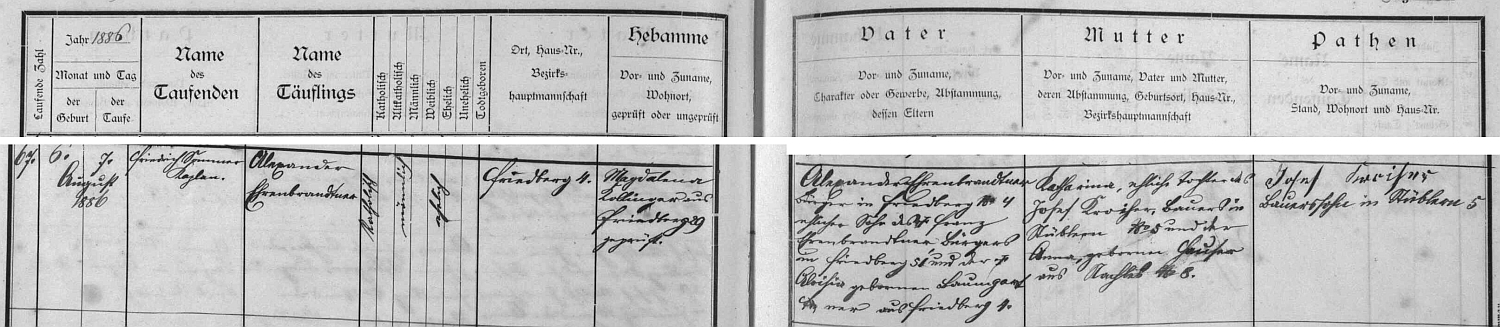 Laufende Zahl
Jahr 1886
Monat und Tag
der Geburt
der Taufe
Name
des
Taufenden
Name
des
Täuflings
Katholisch
Altkatholisch
Männlich
Weiblich
Ehelich
Unehelich
Todtgeboren
Ort, Haus-Nr.,
Bezirks-
hauptmannschaft
Hebamme
Vor- und Zuname,
Wohnort,
geprüft oder ungeprüft
Vater
Vor- und Zuname,
Charakter oder Gewerbe, Abstammung,
dessen Eltern
Mutter
Vor- und Zuname, Vater und Mutter,
deren Abstammung, Geburtsort, Haus-Nr.,
Bezirkshauptmannschaft
Pathen
Vor- und Zuname,
Stand, Wohnort und Haus-Nr.
6. 7.
August
1886
Friedrich
Kaplan.
Alexander
Ehrenbrandtner
Katholisch
männlich
ehelich
Friedberg 4.
Magdalena
Kollinger aus
Friedberg 29
geprüft.
Alexander Ehrenbrandtner
Bürger in Friedberg No 4
ehlicher Sohn des Franz
Ehrenbrandtner Bürgers
in Friedberg 51 und der
Aloisia gebornen Baumgart
ner aus Friedberg 4.
Katharina, ehliche Tochter des
Josef Kroiher, Bauers in
Stüblern No 5 und der
Anna, geborenen Hauser
aus Nachles No 8.
Josef Kroiher
Bauerssohn in Stüblern 5